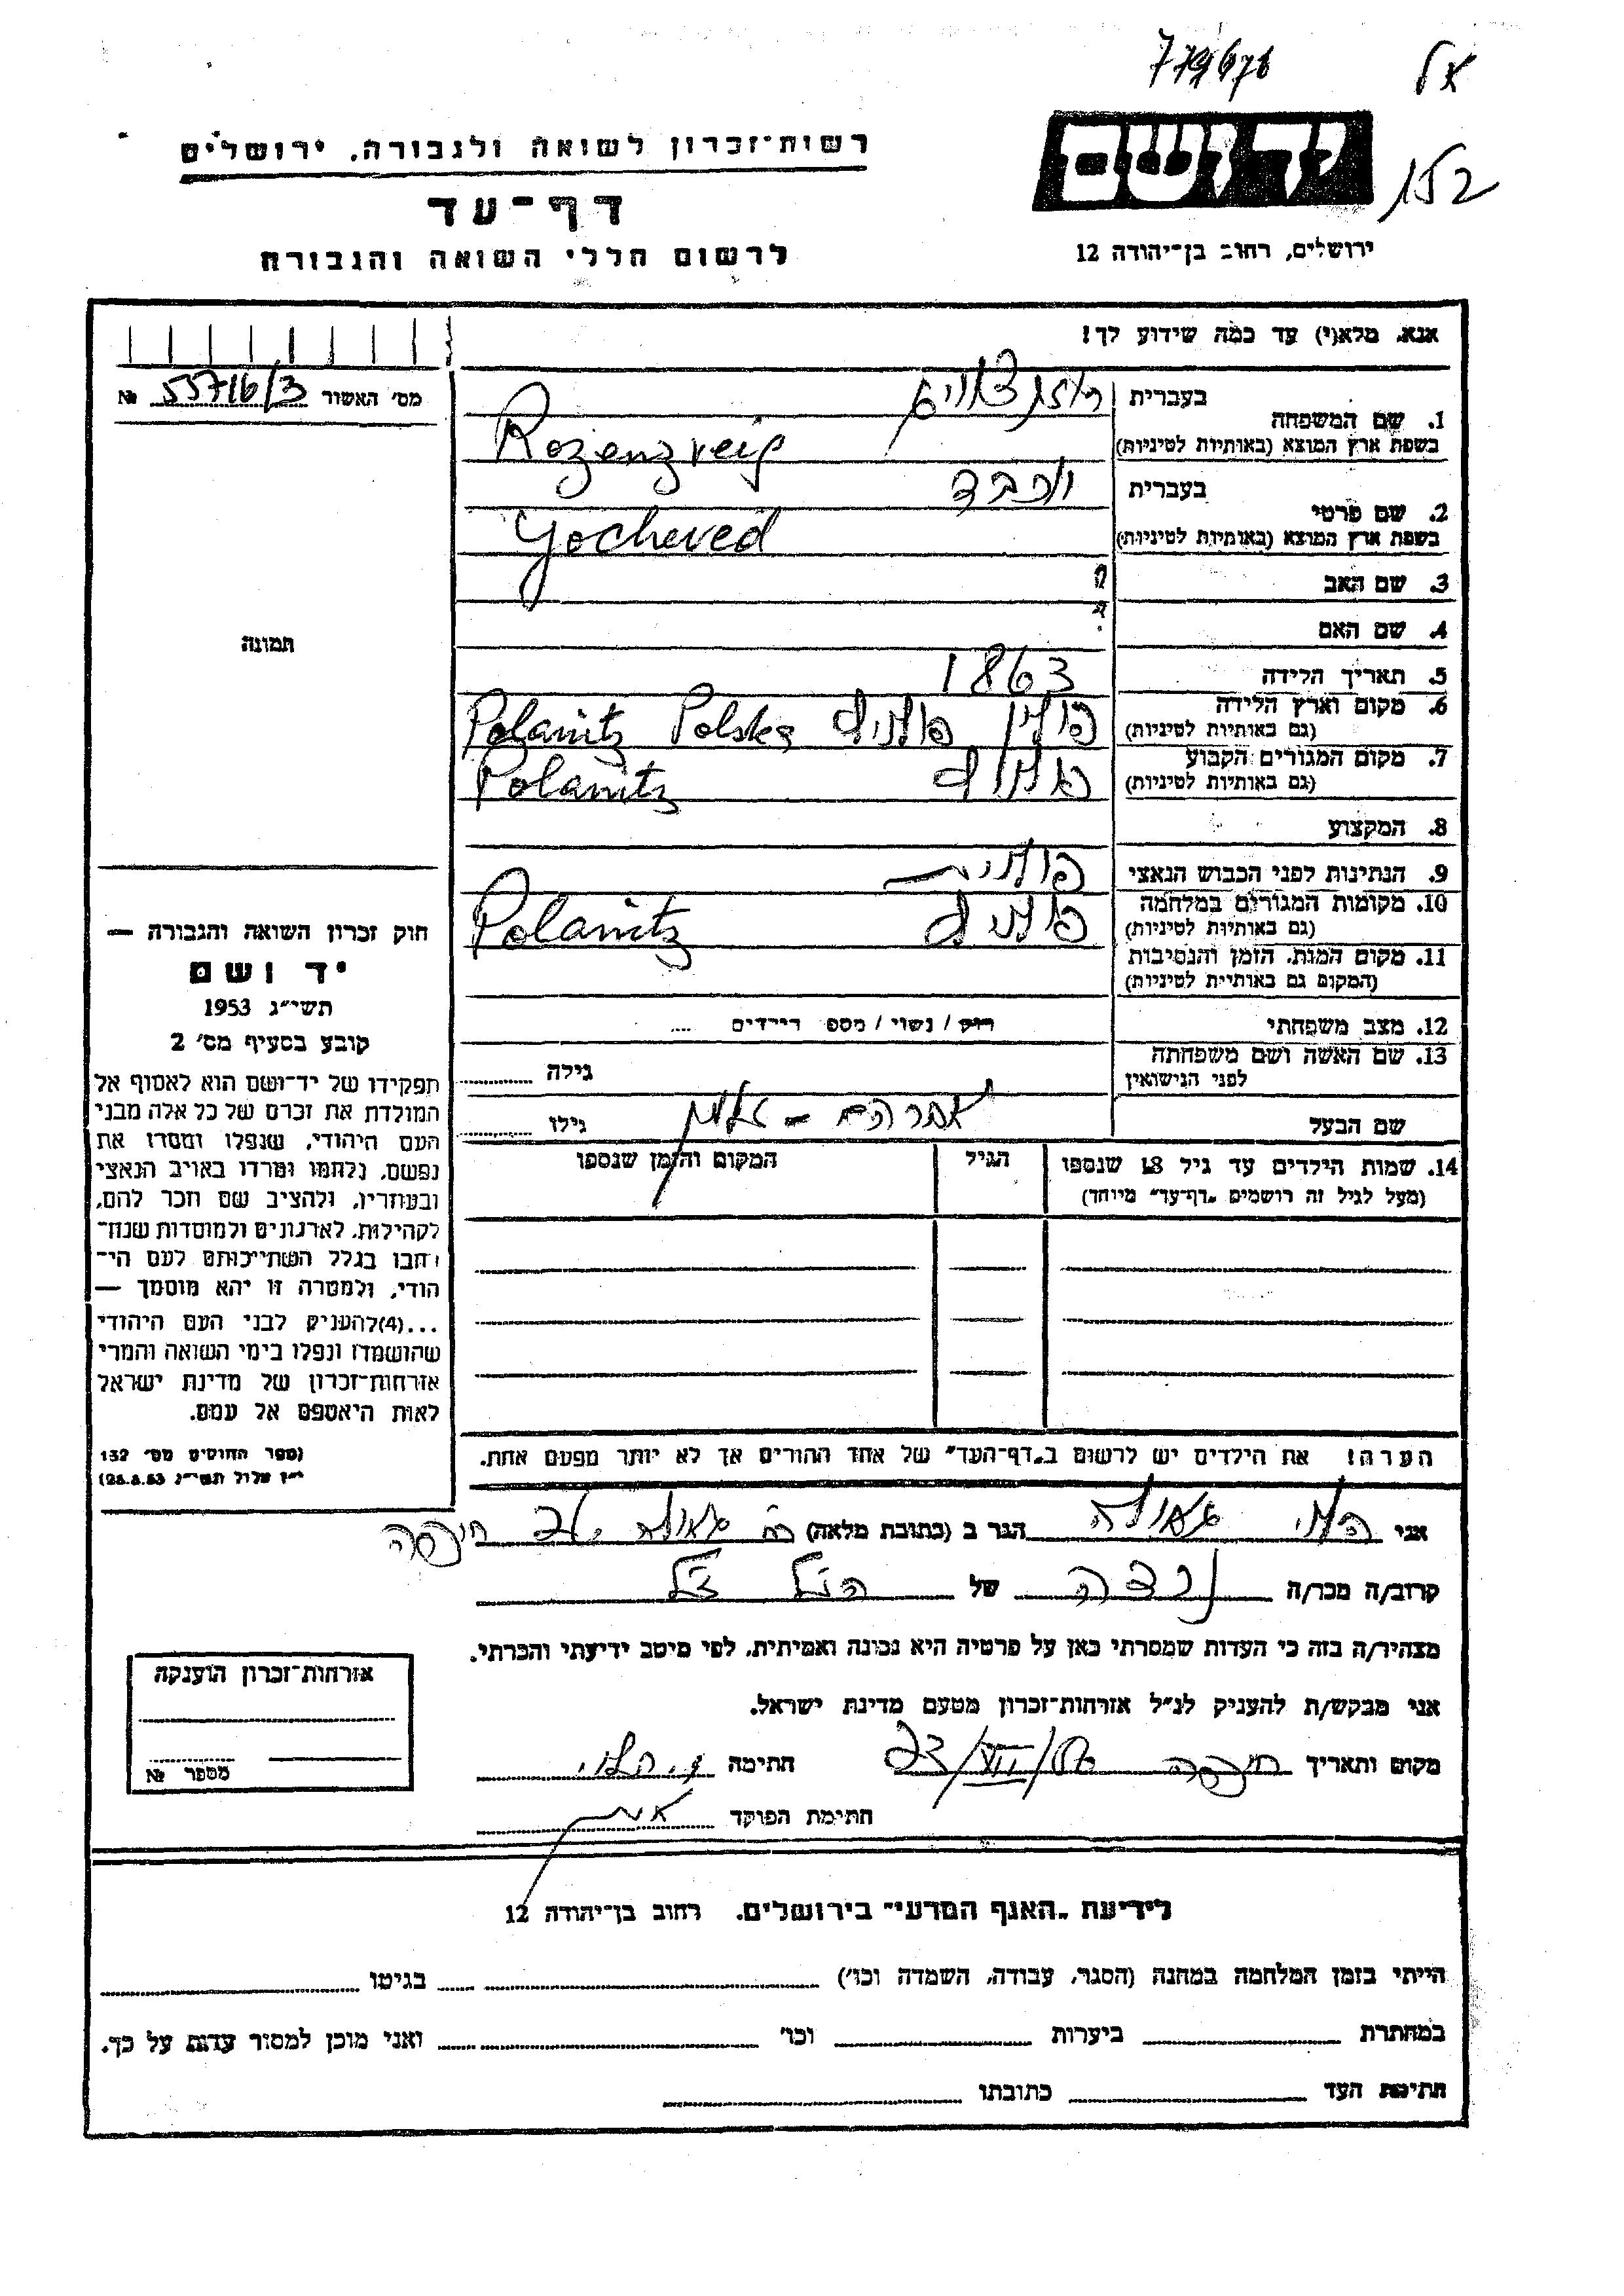 779676
יד ושם
רשות־זכרון לשואה ולגבורה, ירושלים
דף־עד
לרשום חללי השואה והגבורה
ירושלים, רחוב בן־יהודה 12
אנא, מלא(י) עד כמה שידוע לך!
מס׳ האשור 55716/3 №
1. שם המשפחה
בעברית רוזנצוויג
בשפת ארץ המוצא (באותיות לטיניות) Rozenzveig
2. שם פרטי
בעברית יוכבד
בשפת ארץ המוצא (באותיות לטיניות) Yocheved
3. שם האב ?
4. שם האם ?
5. תאריך הלידה 1863
6. מקום וארץ הלידה
(גם באותיות לטיניות) פולין פולניץ Polska Polanitz
7. מקום המגורים הקבוע
(גם באותיות לטיניות) פולניץ Polanitz
8. המקצוע
9. הנתינות לפני הכבוש הנאצי פולנית
10. מקומות המגורים במלחמה
(גם באותיות לטיניות) פולניץ Polanitz
11. מקום המות, הזמן והנסיבות
(המקום גם באותיות לטיניות)
12. מצב משפחתי רווק / נשוי / מספר הילדים ....
13. שם האשה ושם משפחתה
לפני הנישואין גילה
שם הבעל אברהם – גילו
14. שמות הילדים עד גיל 18 שנספו הגיל המקום והזמן שנספו
(מעל לגיל זה רושמים „דף־עד״ מיוחד)
תמונה
חוק זכרון השואה והגבורה —
יד ושם
תשי״ג 1953
קובע בסעיף מס׳ 2
תפקידו של יד־ושם הוא לאסוף אל
המולדת את זכרם של כל אלה מבני
העם היהודי, שנפלו ומסרו את
נפשם, נלחמו ומרדו באויב הנאצי
ובעוזריו, ולהציב שם וזכר להם,
לקהילות, לארגונים ולמוסדות שנח־
רבו בגלל השתייכותם לעם הי־
הודי, ולמטרה זו יהא מוסמך —
...(4)להעניק לבני העם היהודי
שהושמדו ונפלו בימי השואה והמרי
אזרחות־זכרון של מדינת ישראל
לאות היאספם אל עמם.
(ספר החוקים מס׳ 132
י״ז אלול תשי״ג 28.8.53)
הערה! את הילדים יש לרשום ב„דף־העד״ של אחד ההורים אך לא יותר מפעם אחת.
אני גאולה הגר ב (כתובת מלאה) רח גאולה חיפה
קרוב/ה מכר/ה נכדה של הנ״ל ז״ל
מצהיר/ה בזה כי העדות שמסרתי כאן על פרטיה היא נכונה ואמיתית, לפי מיטב ידיעתי והכרתי.
אני מבקש/ת להעניק לנ״ל אזרחות־זכרון מטעם מדינת ישראל.
מקום ותאריך חיפה חתימה
חתימת הפוקד
אזרחות־זכרון הוענקה
מספר №
לידיעת „האגף המדעי״ בירושלים, רחוב בן־יהודה 12
הייתי בזמן המלחמה במחנה (הסגר, עבודה, השמדה וכו׳) בגיטו
במחתרת ביערות וכו׳ ואני מוכן למסור עדות על כך.
חתימת העד כתובתו